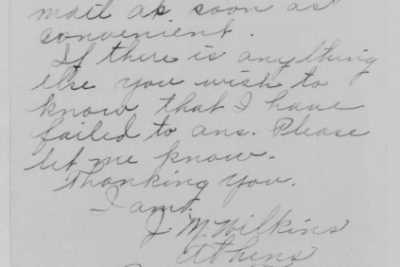 mail as soon as
convenient.
If there is anything
else you wish to
know that I have
failed to ans. Please
let me know.
Thanking you.
I am.
J M. Wilkins
Athens